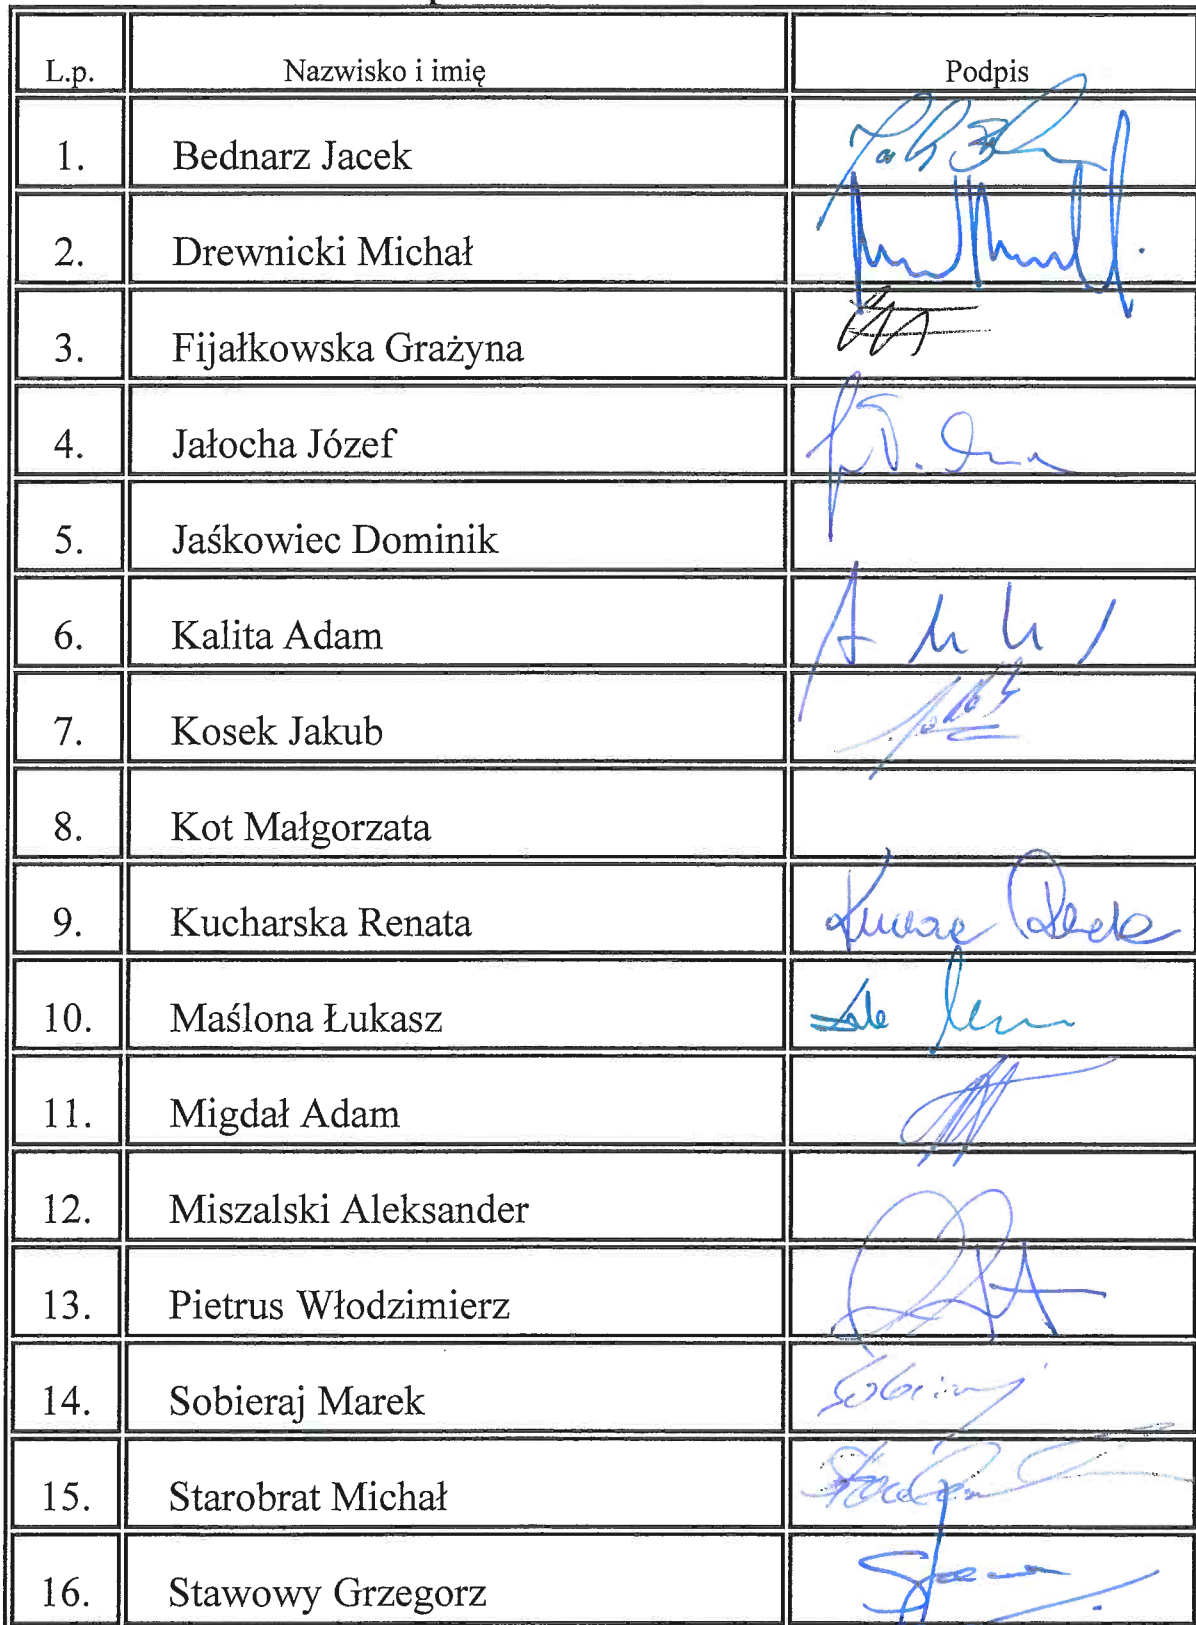 L.p. Nazwisko i imię Podpis
1. Bednarz Jacek
2. Drewnicki Michał
3. Fijałkowska Grażyna
4. Jałocha Józef
5. Jaśkowiec Dominik
6. Kalita Adam
7. Kosek Jakub
8. Kot Małgorzata
9. Kucharska Renata
10. Maślona Łukasz
11. Migdał Adam
12. Miszalski Aleksander
13. Pietrus Włodzimierz
14. Sobieraj Marek
15. Starobrat Michał
16. Stawowy Grzegorz